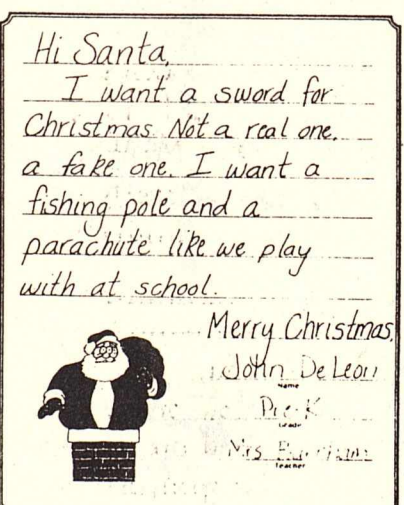 Hi Santa,
I want a sword for
Christmas Not a real one.
a fake one. I want a
fishing pole and a
parachute like we play
with at school.
Merry Christmas,
John De Leon
Name
Pre-K
Grade
Mrs
Teacher